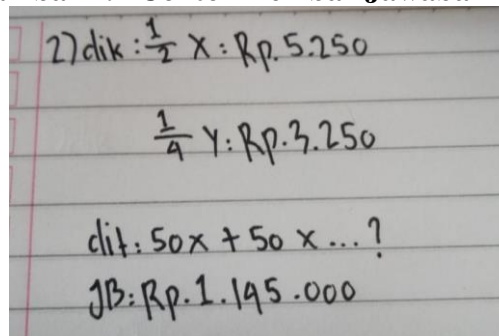 2) dik : 1/2 X : Rp. 5.250
1/4 Y : Rp. 3.250
dit : 50x + 50 x ... ?
JB : Rp. 1.195.000